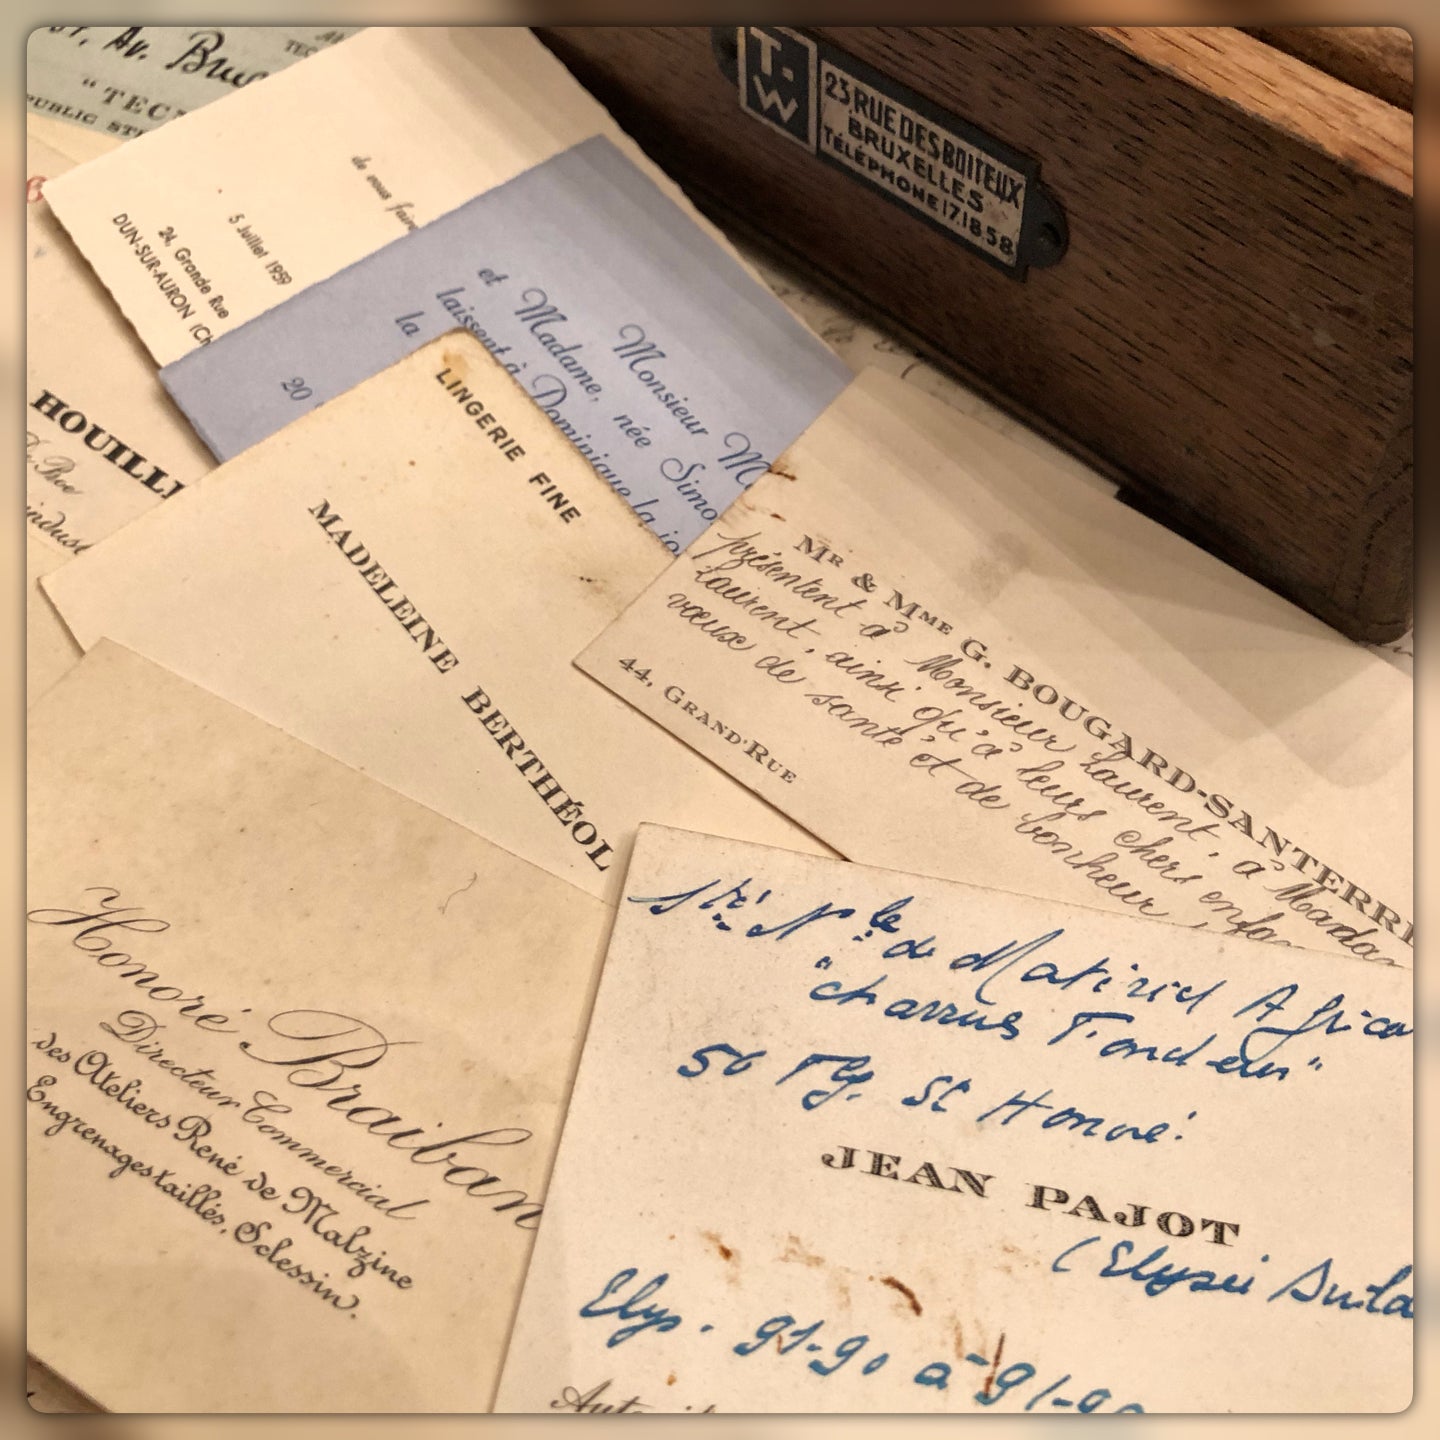 Av.
"TEC
PUBLIC
T.
W
23, RUE DES BOITEUX
BRUXELLES
TÉLÉPHONE 17.18.58
de vous fair
5 Juillet 1959
24, Grande Rue
DUN-SUR-AURON (Ch
Monsieur M
et Madame, née Simo
laissent à Dominique la jo
la
20
HOUILL
indust
LINGERIE FINE
MADELEINE BERTHÉOL
MR & MME G. BOUGARD-SANTERRE
présentent à Monsieur Laurent, à Madam
Laurent, ainsi qu'à leurs chers enfan
vœux de santé et de bonheur,
44, GRAND'RUE
Honoré Braiban
Directeur Commercial
des Ateliers René de Malzine
Engrenages taillés, Sclessin.
Sté Nle de Matériel Agrico
"charrues Fondeur"
56 Fg. St Honoré
JEAN PAJOT
(Elysée
Elys. 91-90 à 91-9